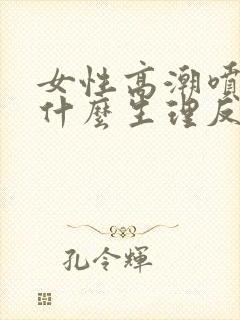 女性高潮噴
什麼生理反
孔令輝